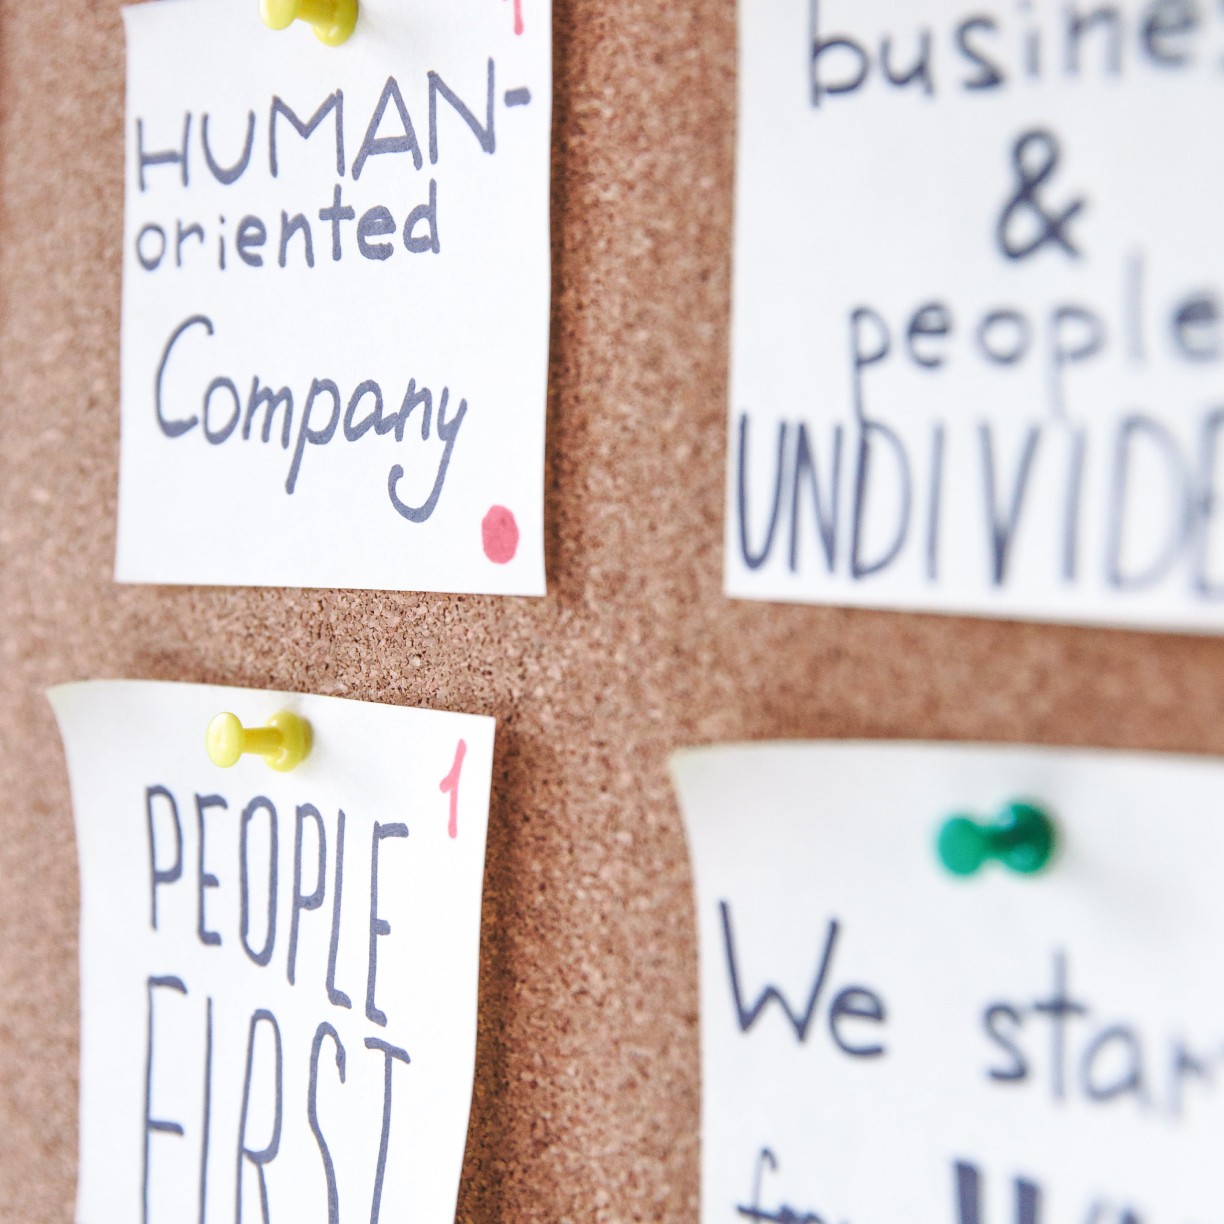 1
HUMAN-
oriented
Company
busine
&
people
UNDIVIDE
1
PEOPLE
FIRST
We star